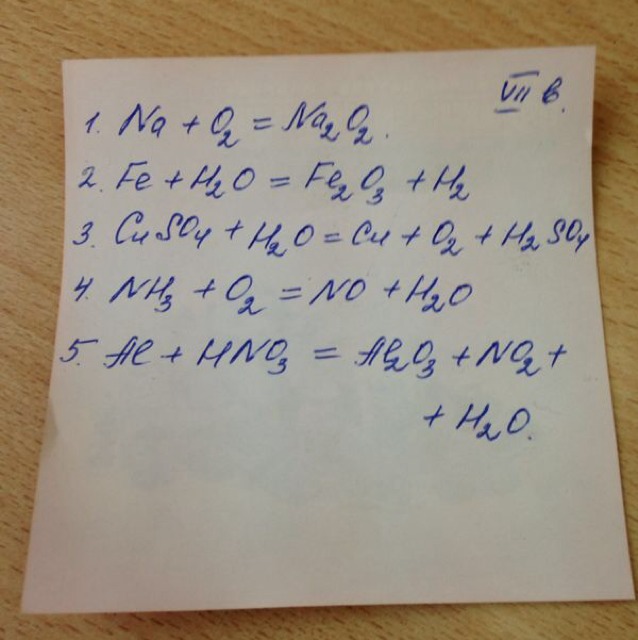 VII в.
1. Na + O₂ = Na₂O₂.
2. Fe + H₂O = Fe₂O₃ + H₂
3. CuSO₄ + H₂O = Cu + O₂ + H₂SO₄
4. NH₃ + O₂ = NO + H₂O
5. Al + HNO₃ = Al₂O₃ + NO₂ +
+ H₂O.